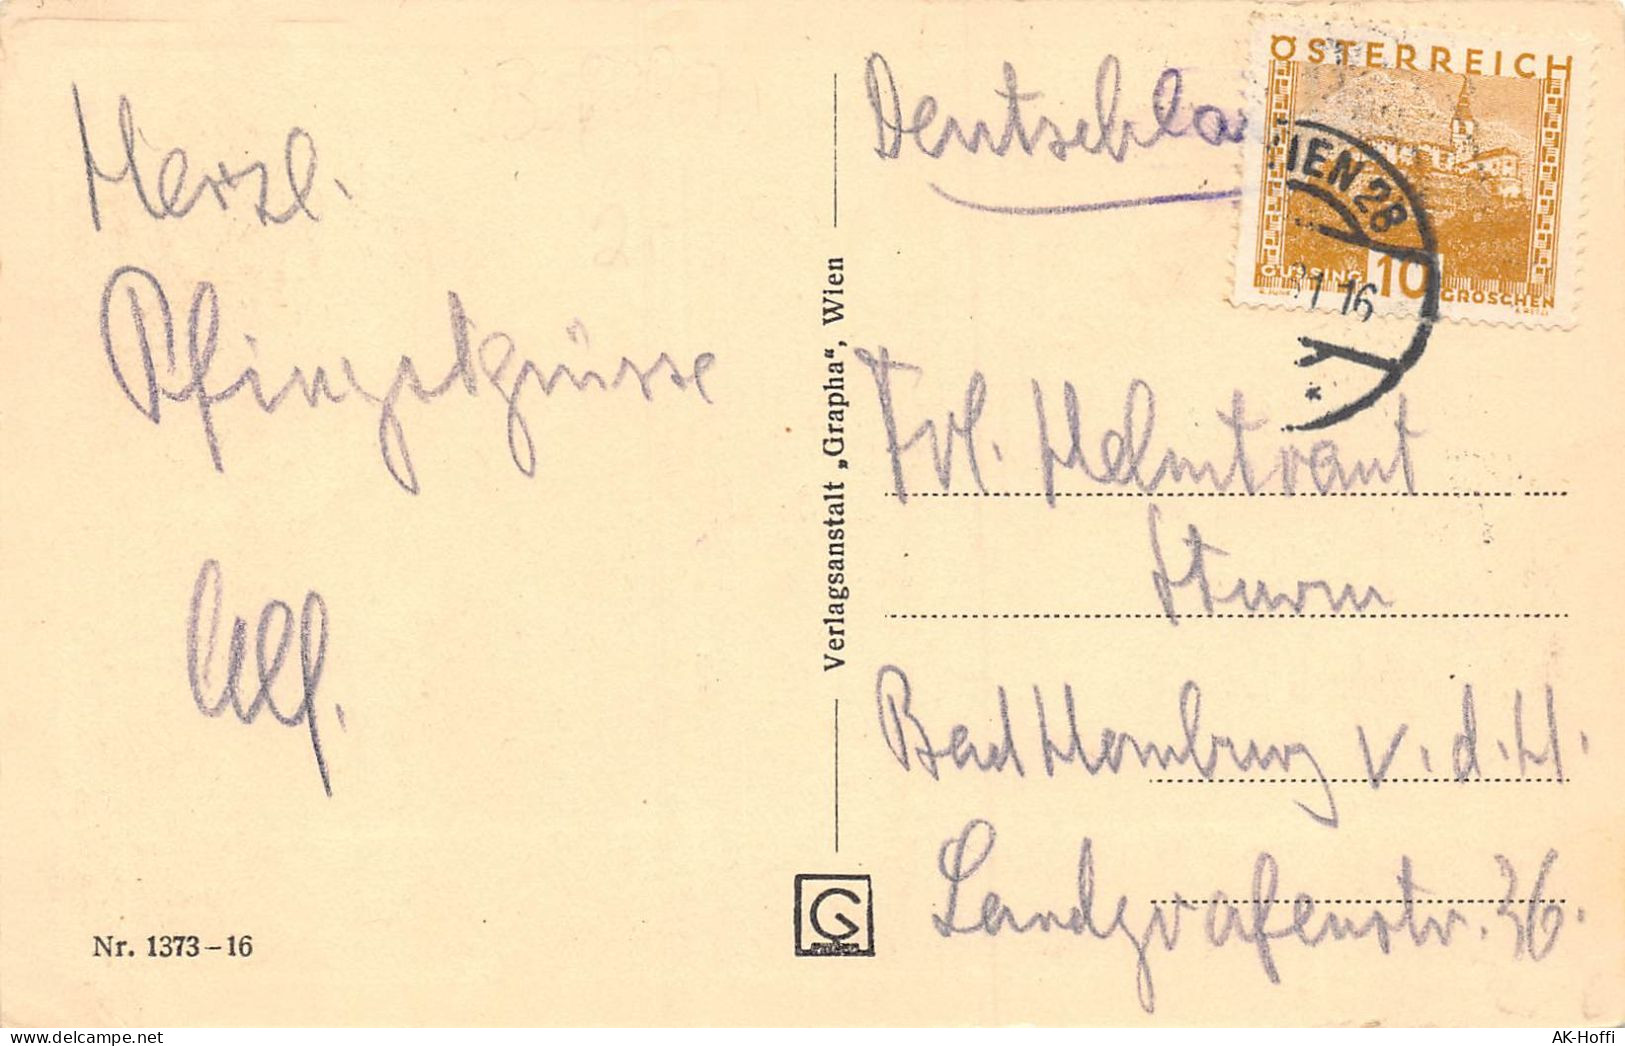 Herzl.
Pfingstgrüsse
Nr. 1373-16
Verlagsanstalt „Grapha“, Wien
G
Deutschla
ÖSTERREICH
GÜSSING 10 GROSCHEN
IEN 28
16
Frl. Helmtraut
Sturm
Bad Homburg v. d. H.
Landgrafenstr. 36.
AK-Hoffi